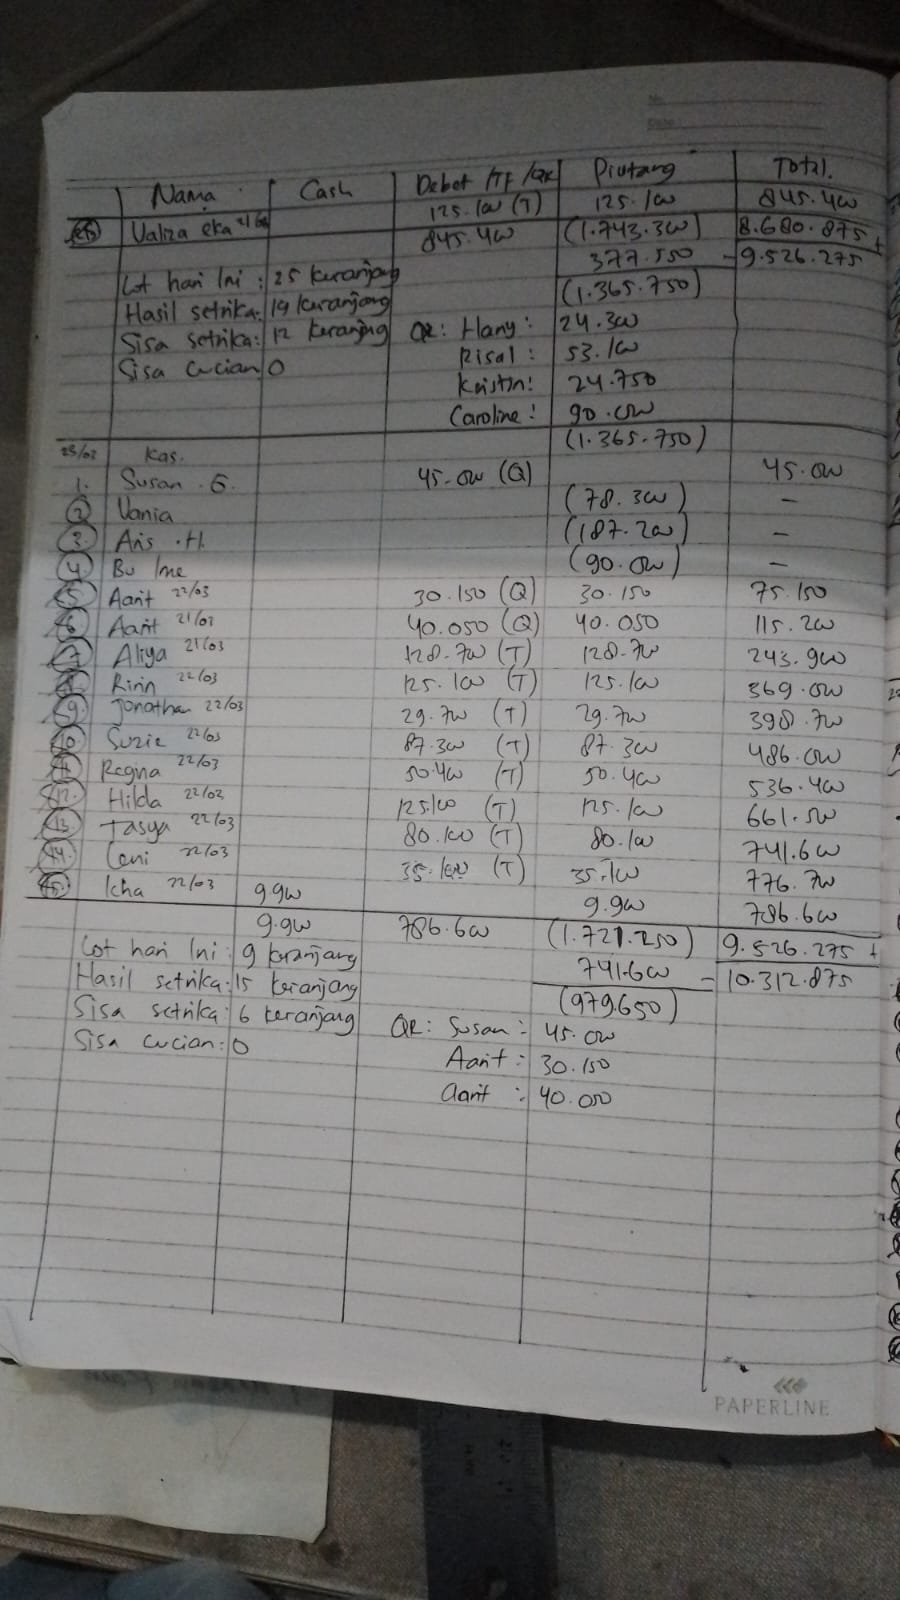 No.
Date
Nama Cash Debet /TF /QR Piutang Total.
125.100 (T) 125.100 845.400
Valiza eka 21/03 845.400 (1.743.300) 8.680.875 +
377.550 - 9.526.275
Cot hari Ini : 25 keranjang (1.365.750)
Hasil setrika: 19 keranjang
Sisa setrika: 12 keranjang QR: Hany: 24.300
Sisa cucian: 0 Risal: 53.100
Kristin: 24.750
Caroline: 90.000
(1.365.750)
23/03 Kas.
1. Susan .G. 45.000 (Q) 45.000
2 Vania (78.300) -
3. Ans .H. (187.200) -
4. Bu Ime (90.000) -
5. Aarit 22/03 30.150 (Q) 30.150 75.150
6. Aarit 21/03 40.050 (Q) 40.050 115.200
7. Aliya 21/03 128.700 (T) 128.700 243.900
8. Ririn 22/03 125.100 (T) 125.100 369.000
9. Jonathan 22/03 29.700 (T) 29.700 398.700
10. Suzie 22/03 87.300 (T) 87.300 486.000
11. Regina 22/03 50.400 (T) 50.400 536.400
12. Hilda 22/03 125.100 (T) 125.100 661.500
13. Tasya 22/03 80.100 (T) 80.100 741.600
14. Ceni 22/03 35.100 (T) 35.100 776.700
15. Icha 22/03 9.900 9.900 786.600
9.900 786.600 (1.721.250) 9.526.275 +
Cot hari Ini : 9 keranjang 741.600 - 10.312.875
Hasil setrika: 15 keranjang (979.650)
Sisa setrika: 6 keranjang QR: Susan: 45.000
Sisa cucian: 0 Aarit: 30.150
Aarit : 40.050
PAPERLINE